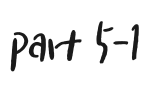 part 5-1